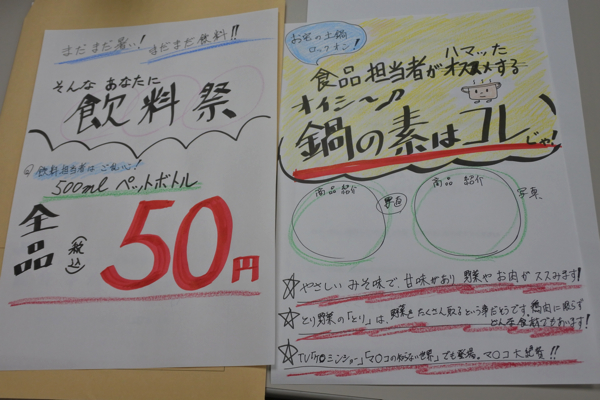 まだまだ暑い！ まだまだ飲料!!
そんな あなたに
飲料祭
飲料担当者は
500ml ペットボトル
全品
(税込)
50円
お宅の土鍋に
ロックオン！
ハマッた
食品担当者がオススメする
オイシ〜♪
鍋の素はコレじゃ！
商品紹介
写真
商品 紹介
写真
☆やさしい みそ味で、甘味があり 野菜や お肉が ススみます！
☆とり野菜の「とり」は、野菜をたくさん取るという事だそうです。鶏肉に限らず
どんな食材でも合います！
でも登場。マツコ大絶賛!!